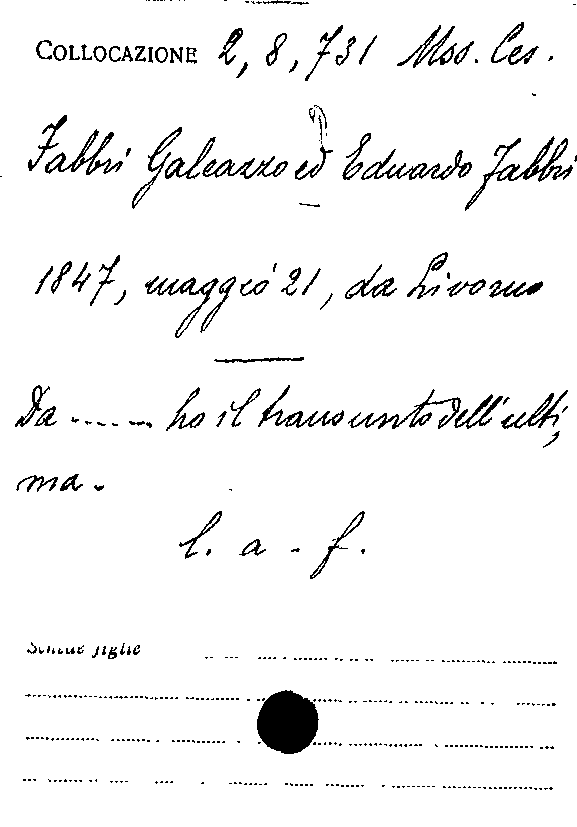 COLLOCAZIONE 2, 8, 731 Mss. Ces.
Fabbri Galeazzo ed Eduardo Fabbri
1847, maggio 21, da Livorno
Da ...... ho il transunto dell'ulti,
ma.
l. a - f.
Schede figlie